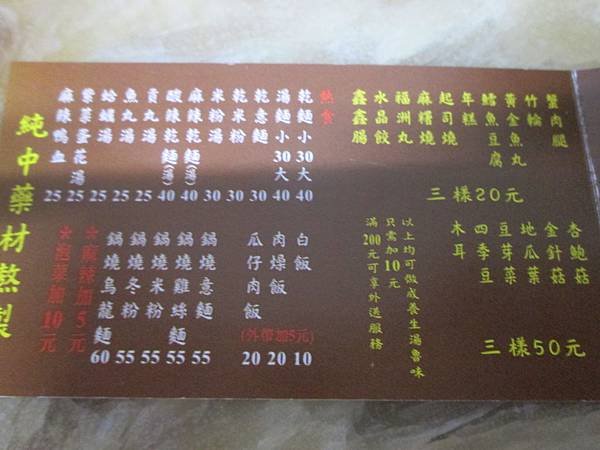 蟹肉腿
竹輪
黃金魚丸
鱈魚豆腐
年糕
起司燒
麻糬燒
福洲丸
水晶餃
鑫鑫腸
三樣20元
杏鮑菇
金針菇
地瓜葉
豆芽菜
四季豆
木耳
三樣50元
以上均可做成養生湯魯味
只需加10元
滿200元可享外送服務
熱食
乾麵小30大40
湯麵小30大40
乾意麵30
乾米粉30
米粉湯30
麻辣乾麵(湯)40
酸辣乾麵(湯)40
貢丸湯25
魚丸湯25
蛤蠣湯25
紫菜蛋花湯25
麻辣鴨血25
白飯10
肉燥飯20
瓜仔肉飯20
(外帶加5元)
鍋燒意麵55
鍋燒雞絲麵55
鍋燒米粉55
鍋燒冬粉55
鍋燒烏龍麵60
*麻辣加5元
*泡菜加10元
純中藥材熬製